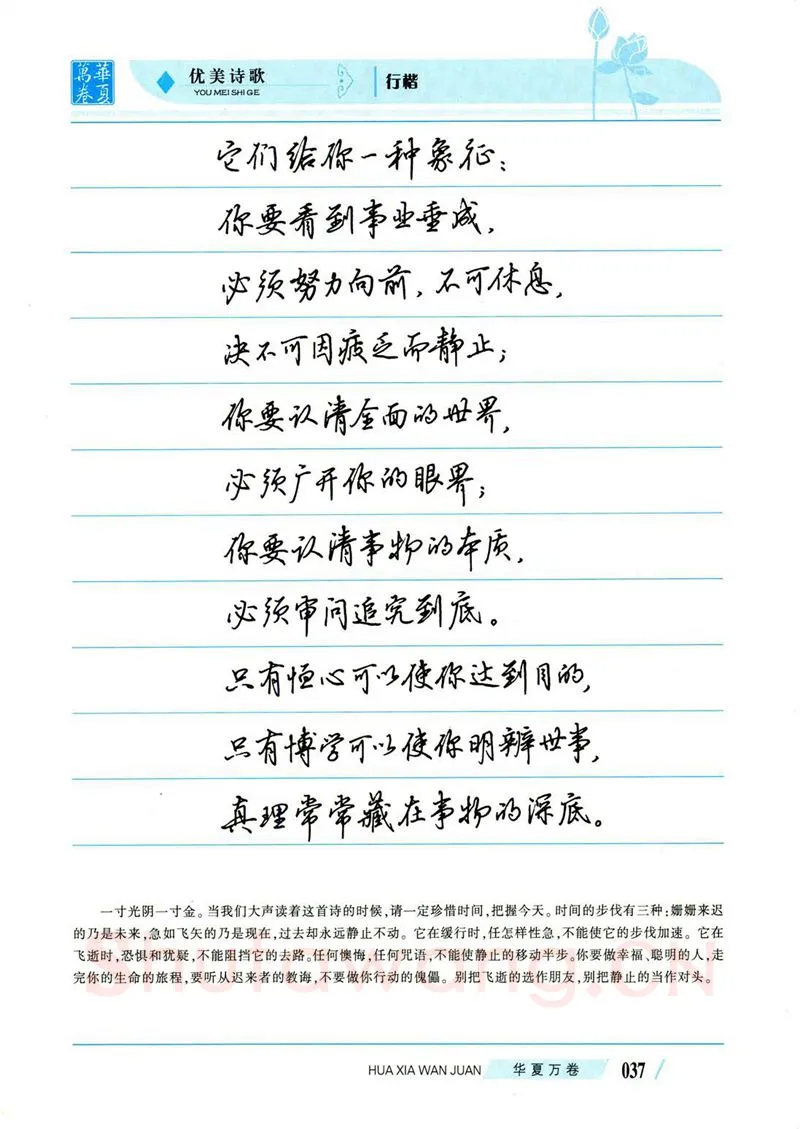 華夏
萬卷
优美诗歌
YOU MEI SHI GE
行楷
它们给你一种象征：
你要看到事业垂成，
必须努力向前，不可休息，
决不可因疲乏而静止；
你要认清全面的世界，
必须广开你的眼界；
你要认清事物的本质，
必须审问追究到底。
只有恒心可以使你达到目的，
只有博学可以使你明辨世事，
真理常常藏在事物的深底。
一寸光阴一寸金。当我们大声读着这首诗的时候，请一定珍惜时间，把握今天。时间的步伐有三种：姗姗来迟
的乃是未来，急如飞矢的乃是现在，过去却永远静止不动。它在缓行时，任怎样性急，不能使它的步伐加速。它在
飞逝时，恐惧和犹疑，不能阻挡它的去路。任何懊悔，任何咒语，不能使静止的移动半步。你要做幸福、聪明的人，走
完你的生命的旅程，要听从迟来者的教诲，不要做你行动的傀儡。别把飞逝的选作朋友，别把静止的当作对头。
Shufawang.CN
HUA XIA WAN JUAN
华夏万卷
037